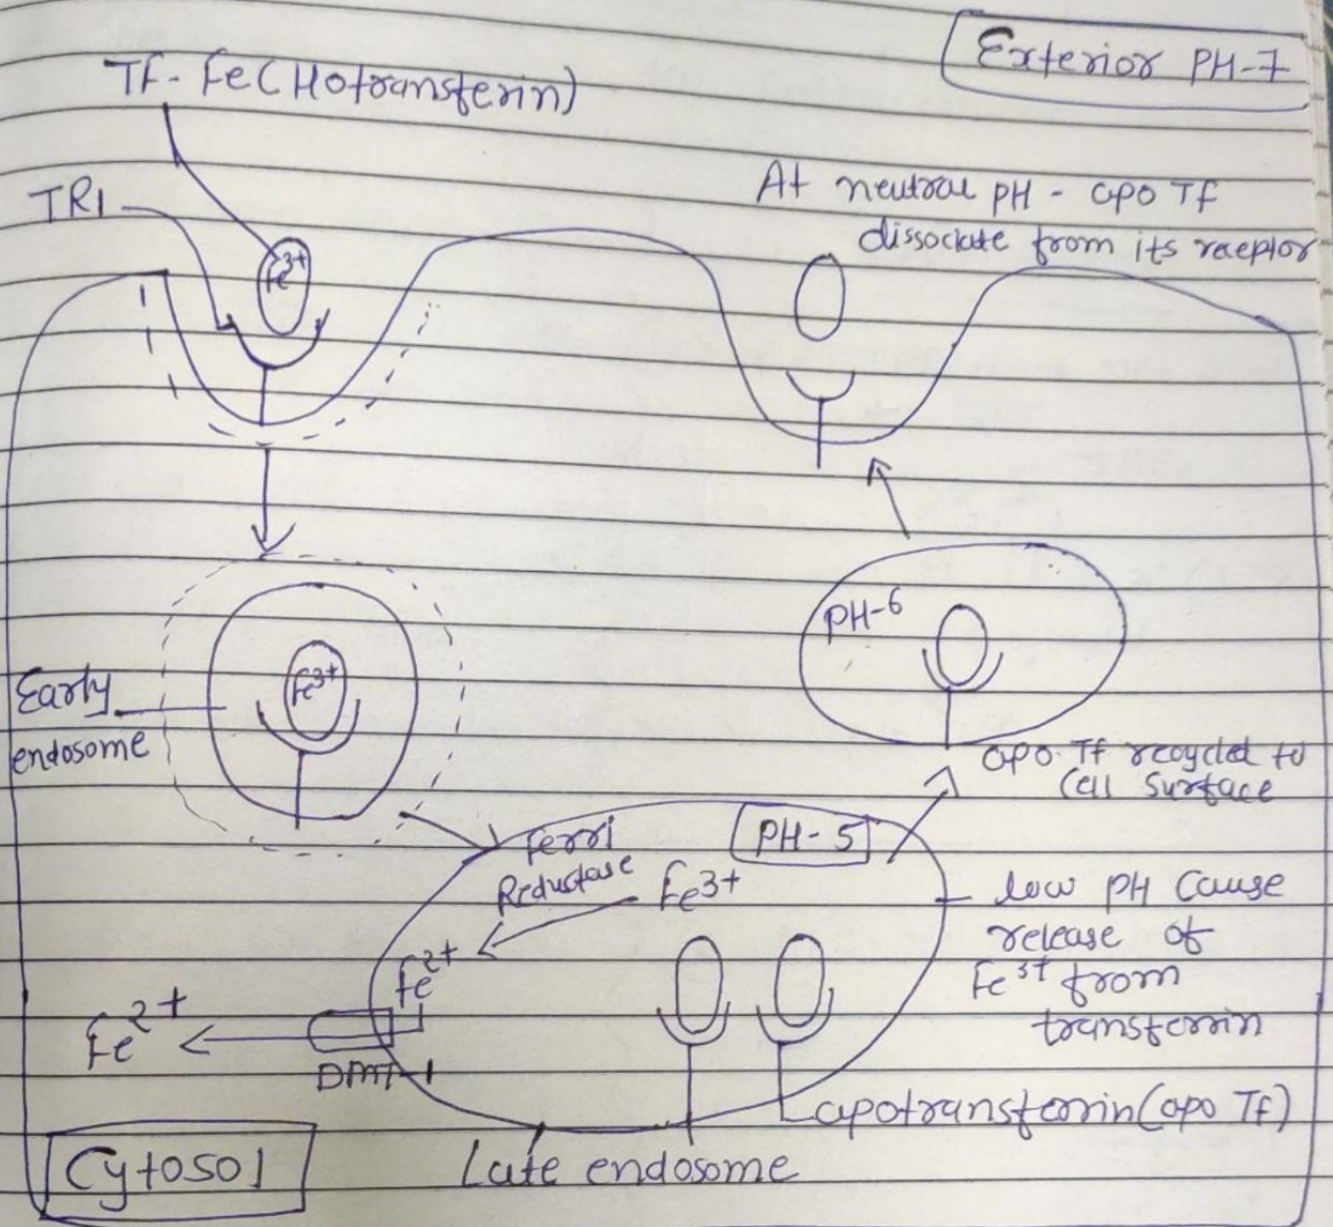 Exterior PH-7
Tf- Fe(Hotransferin)
TR1
Fe3+
At neutral pH - apo Tf
dissociate from its raeptor
Early
endosome
Fe3+
PH-6
apo Tf recycled to
Cell Surface
Ferri
Reductase
PH-5
Fe3+
Fe2+
Fe2+
DMT-1
low PH Cause
release of
Fe3+ from
transferrin
apotransferrin(apo Tf)
Late endosome
Cytosol